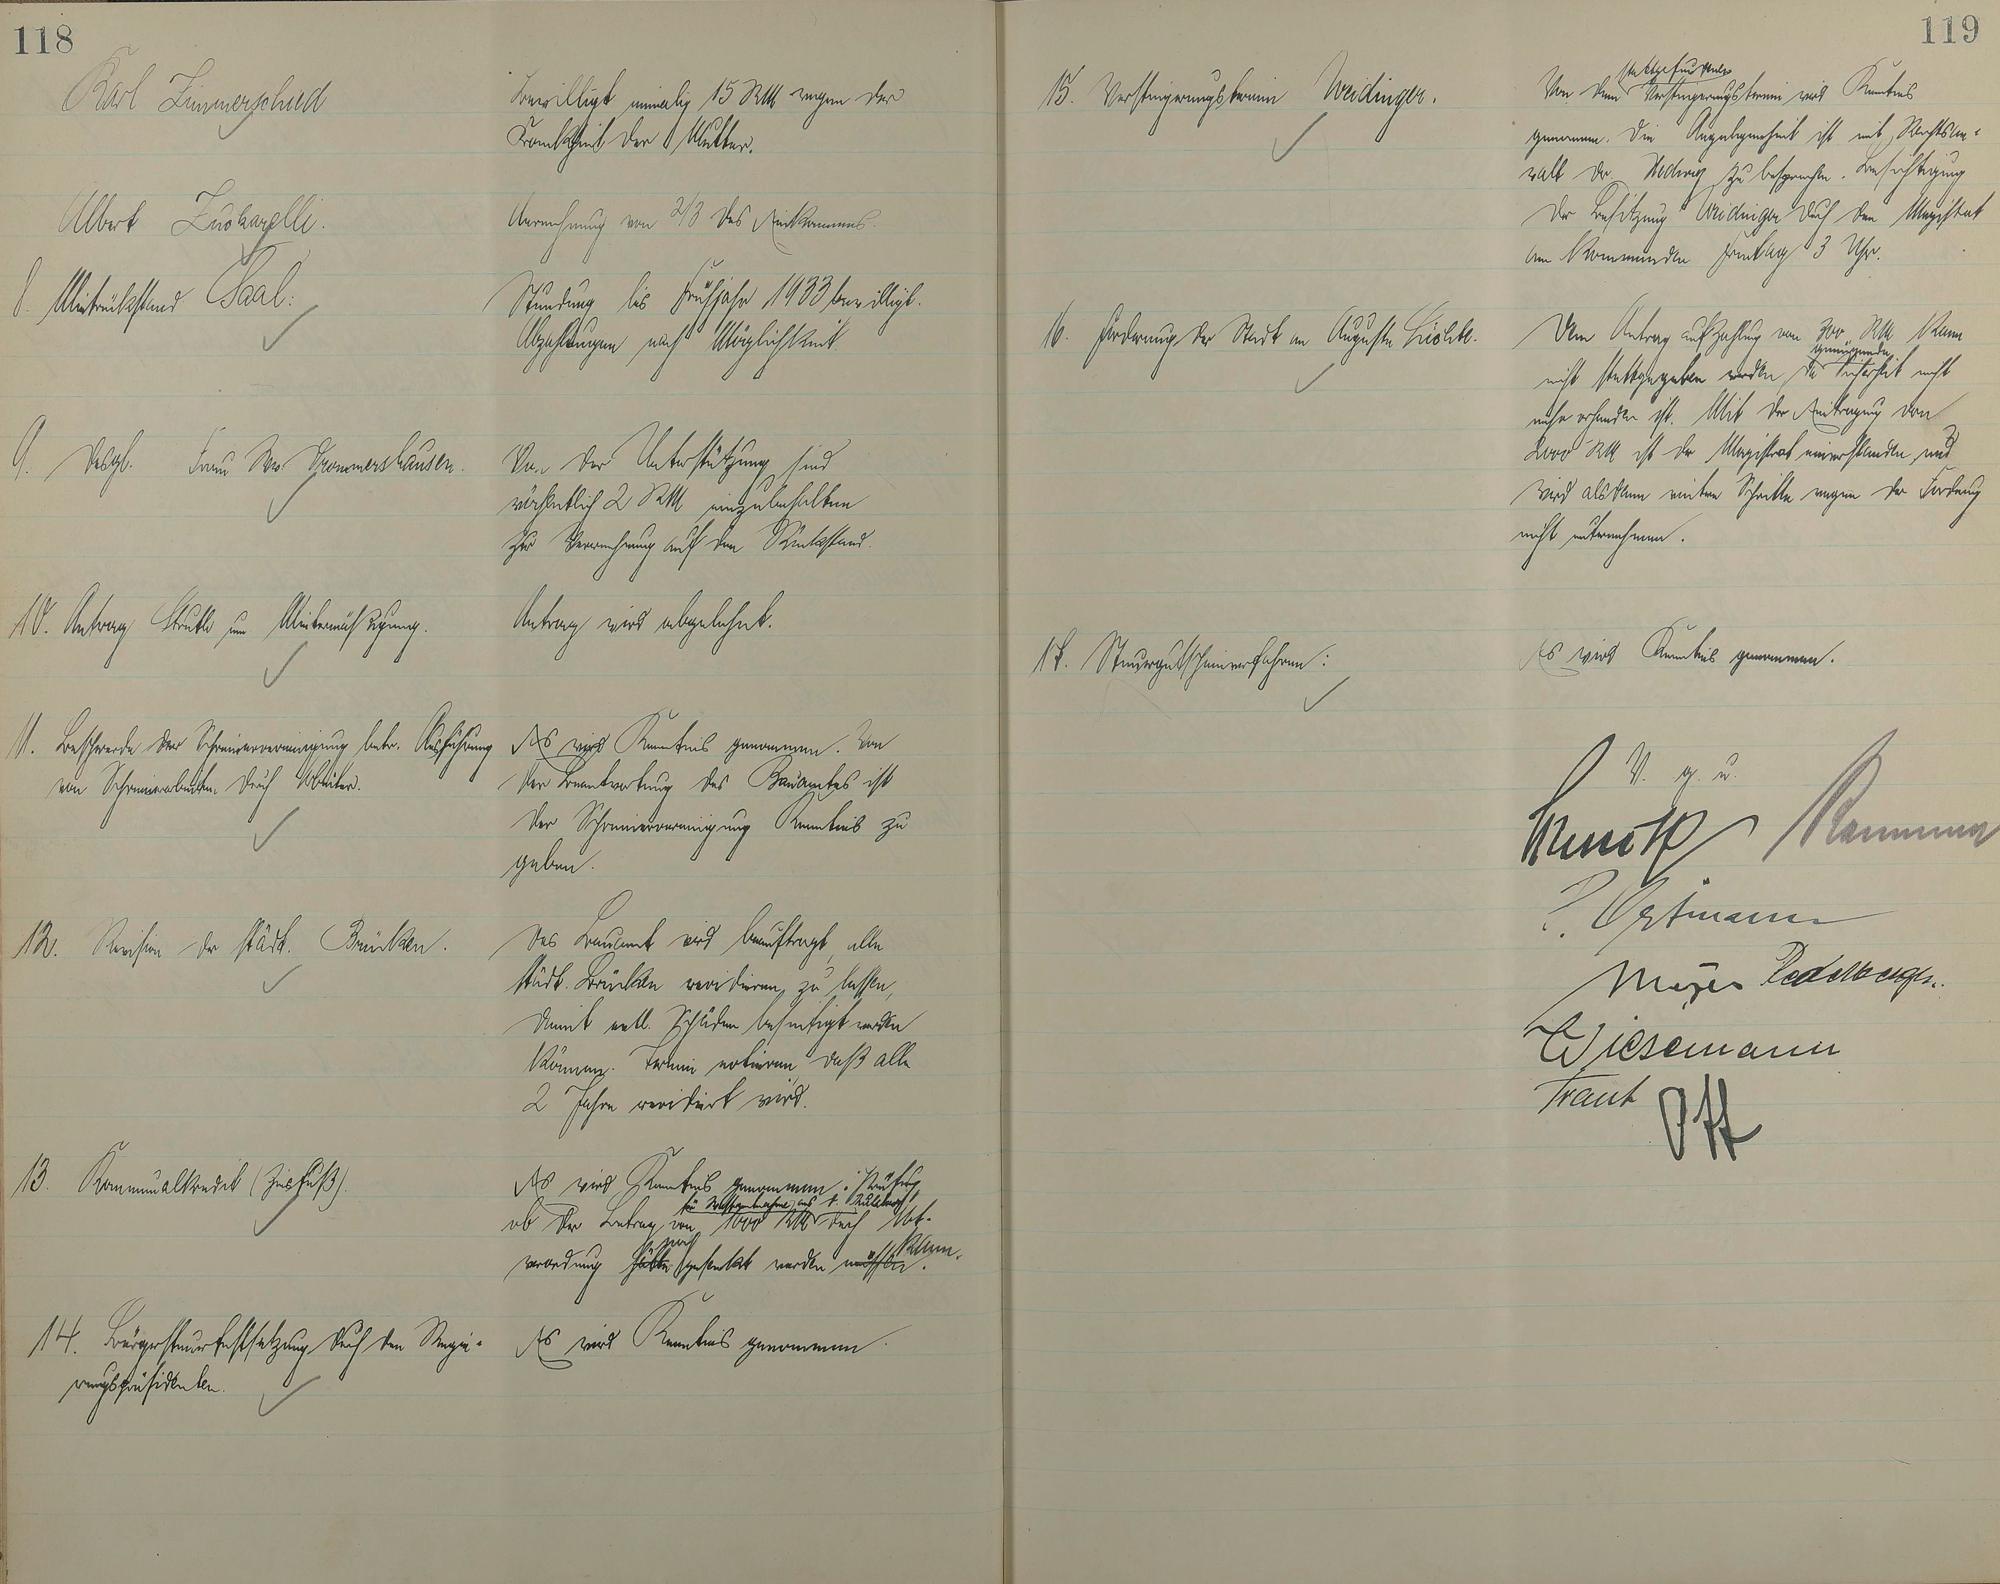 118
Karl Zimmerschied
Bewilligt einmalig 15 RM wegen der
Krankheit der Mutter.
Albert Zuckarelli.
Anrechnung von 2/3 des Einkommens.
8. Mietrückstand Saal:
Stundung bis Frühjahr 1933 bewilligt.
Abzahlungen nach Möglichkeit
9. Desgl. Frau Ww. Drommershausen.
Von der Unterstützung sind
wöchentlich 2 RM einzubehalten
zur Verrechnung auf den Rückstand.
10. Antrag Struth um Mietermäßigung.
Antrag wird abgelehnt.
11. Beschwerde der Schreinervereinigung betr. Ausführung
von Schreinerarbeiten durch Arbeiter.
Es wird Kenntnis genommen. Von
der Beantwortung des Bauamtes ist
der Schreinervereinigung Kenntnis zu
geben.
12. Revision der städt. Brücken.
Das Bauamt wird beauftragt, alle
städt. Brücken revidieren zu lassen,
damit evtl. Schäden beseitigt werden
können. Termin notieren, daß alle
2 Jahre revidiert wird.
13. Kommunalkredit (Zinsfuß).
Es wird Kenntnis genommen. Prüfung,
ob der Betrag von 1000 RM durch Not-
verordnung noch gesenkt werden kann.
14. Bürgersteuerfestsetzung durch den Regie-
rungspräsidenten.
Es wird Kenntnis genommen.
119
15. Versteigerungstermin Weidinger.
stattgefundenen
Von dem Versteigerungstermin wird Kenntnis
genommen. Die Angelegenheit ist mit Rechtsan-
walt Dr. Hedwig zu besprechen. Besichtigung
der Besitzung Weidinger durch den Magistrat
am kommenden Freitag 3 Uhr.
16. Forderung der Stadt an Auguste
Dem Antrag auf Zahlung von 300 RM kann
genügende
nicht stattgegeben werden, da Sicherheit nicht
mehr vorhanden ist. Mit der Eintragung von
2000 RM ist der Magistrat einverstanden und
wird alsdann weitere Schritte wegen der Forderung
nicht unternehmen.
17. Steuergutscheinverfahren:
Es wird Kenntnis genommen.
V. g. u.
Ortmann
Meyer
Wiesemann
Traut Ott